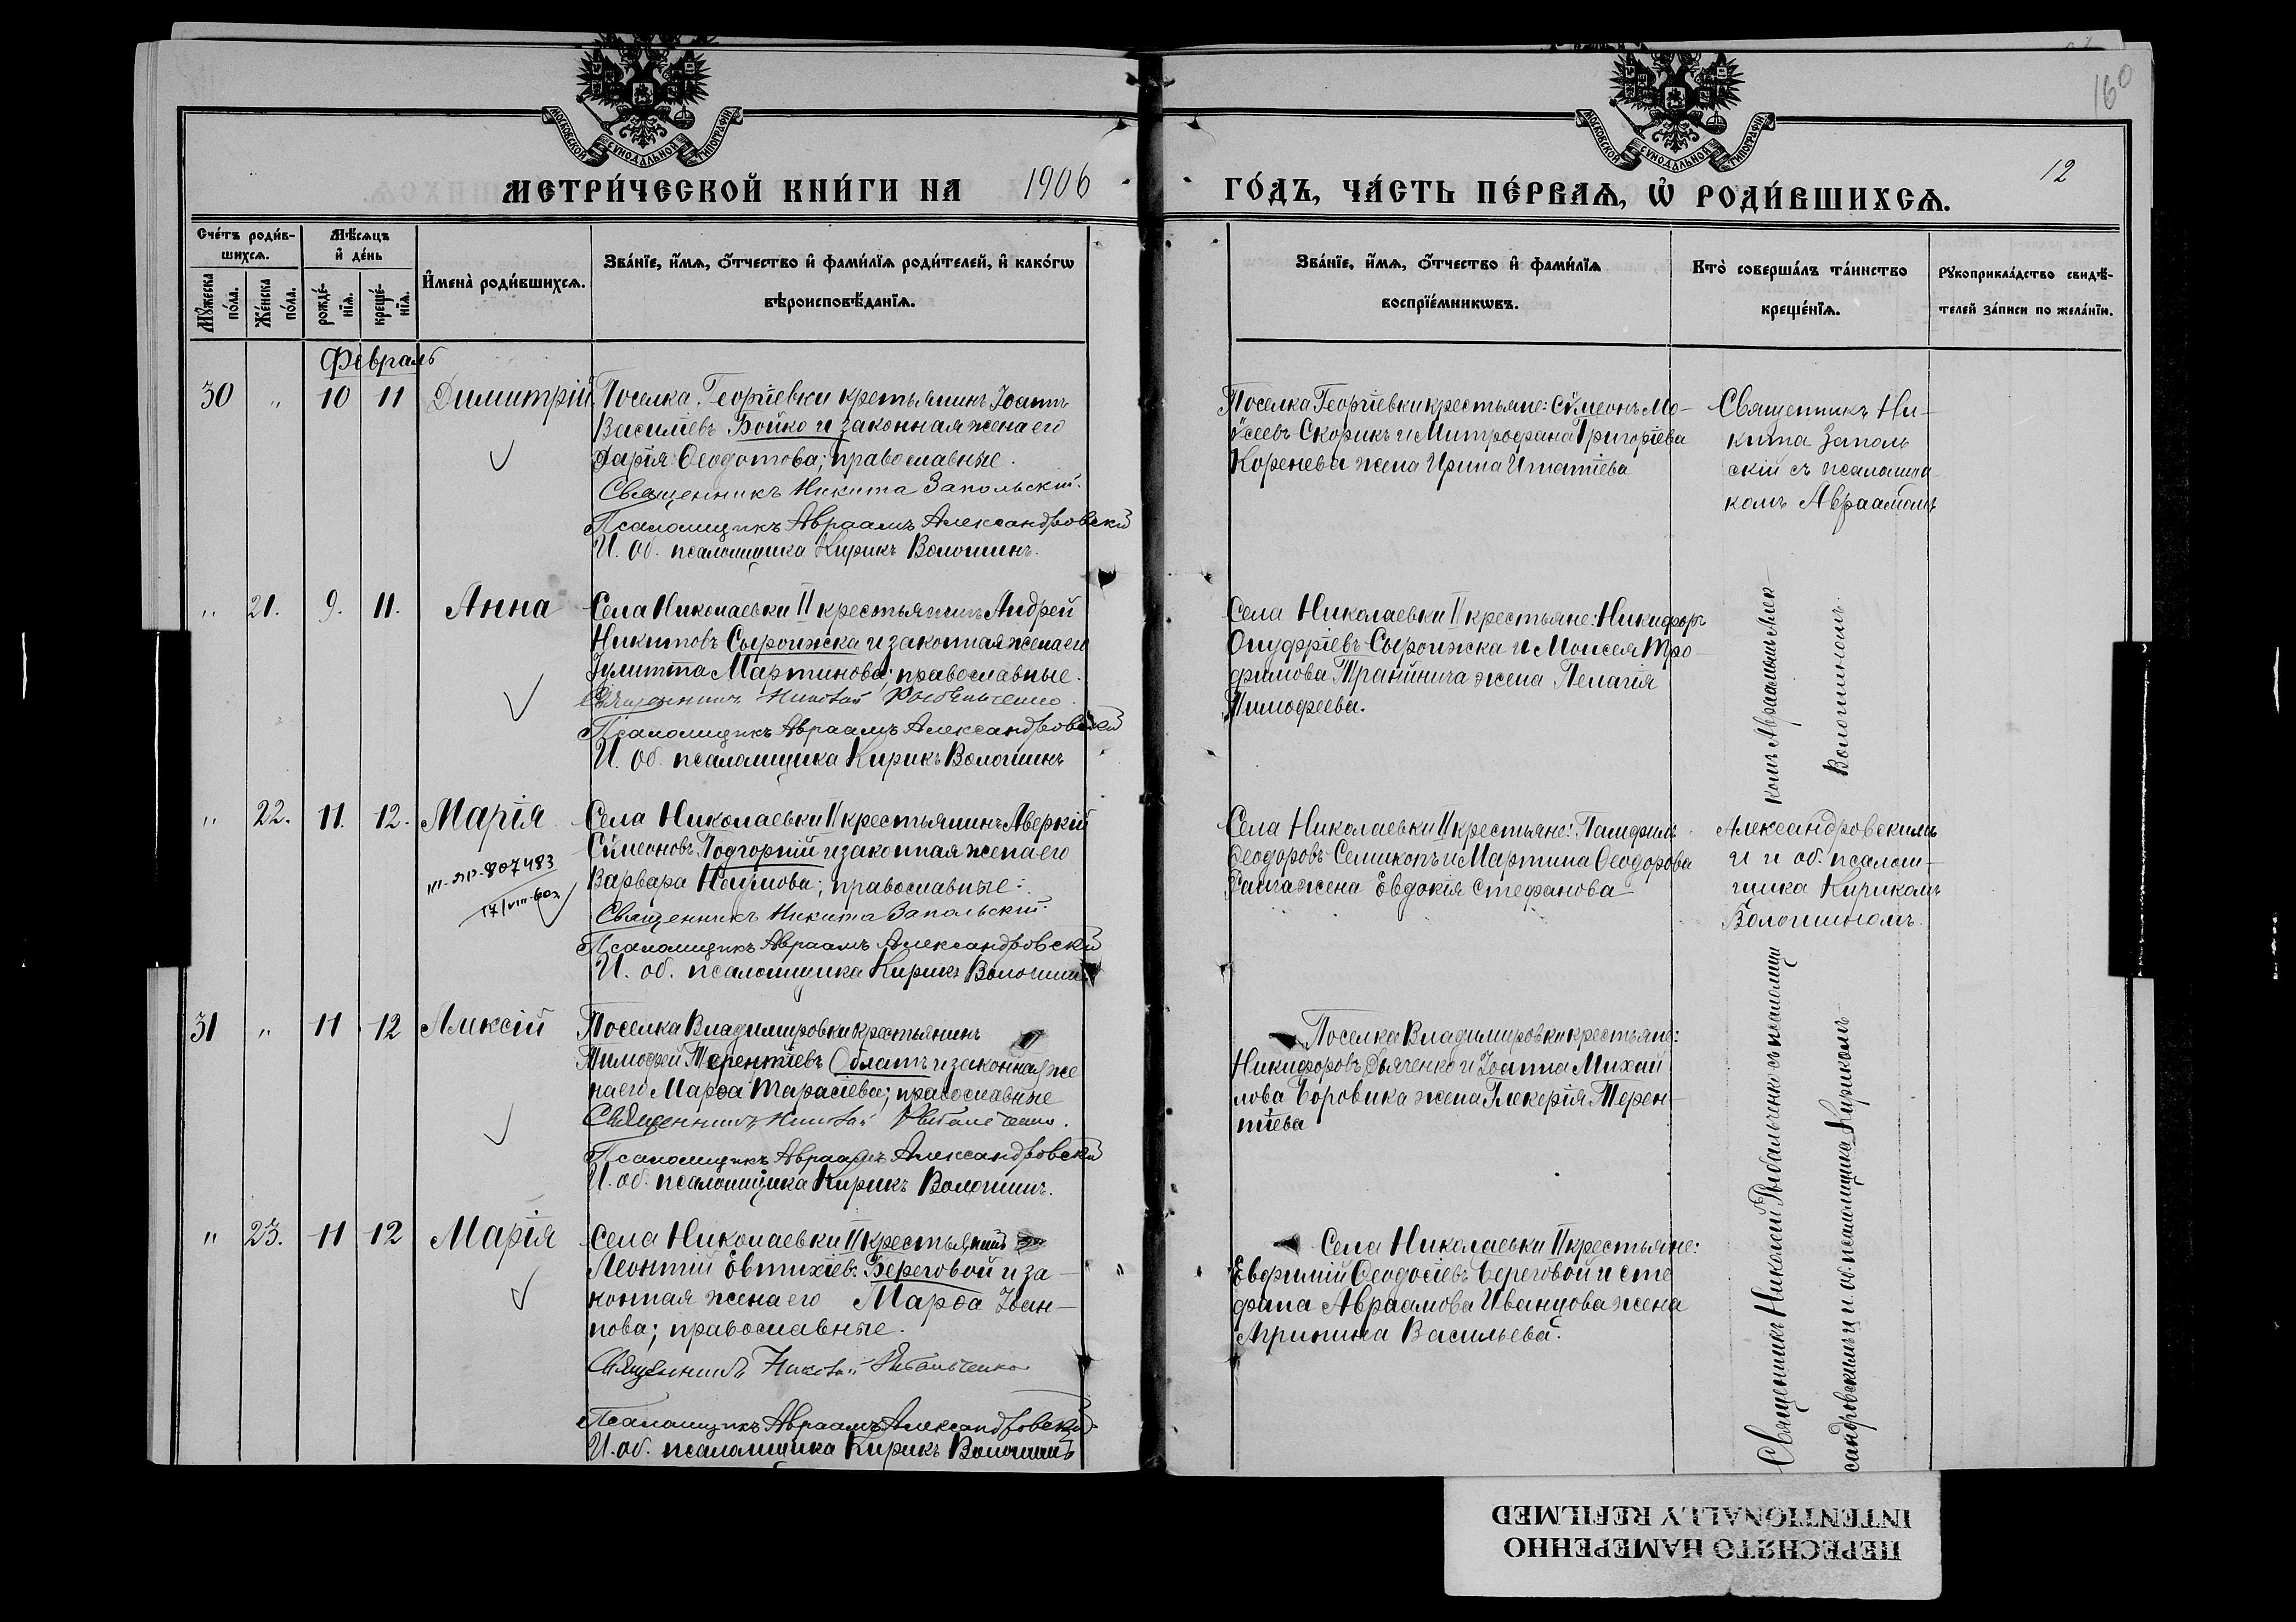 160
МОСКОВСКОЙ СѴНОДАЛЬНОЙ ТИПОГРАФІИ
МОСКОВСКОЙ СѴНОДАЛЬНОЙ ТИПОГРАФІИ
12
МЕТРИ́ЧЕСКОЙ КНИ́ГИ НА 1906
ГО́ДЪ, ЧА́СТЬ ПЕ́РВАѦ, Ѡ҆ РОДИ́ВШИХСѦ.
Сче́тъ роди́в-
шихсѧ.
Мѣ́сѧцъ
и҆ де́нь
Мꙋ́жеска
по́ла.
Же́нска
по́ла.
рожде́-
нїѧ.
креще́-
нїѧ.
И҆мена̀ роди́вшихсѧ.
Зва́нїе, и҆́мѧ, ѻ҆́тчество и҆ фами́лїѧ роди́телей, и҆ како́гѡ
вѣроисповѣ́данїѧ.
Зва́нїе, и҆́мѧ, ѻ҆́тчество и҆ фами́лїѧ
воспрїе́мникѡвъ.
Кто̀ соверша́лъ та́инство
креще́нїѧ.
Рꙋкоприкла́дство свидѣ́-
телей за́писи по жела́нїи.
Февраль
30 " 10 11 Димитрій
Поселка Георгіевки крестьянинъ Іоаннъ
Василіевъ Бойко и законная жена его
Дарія Ѳеодотова; православные.
Священникъ Никита Запольскій.
Псаломщикъ Авраамъ Александровскій
И. об. псаломщика Кирикъ Волошинъ.
Поселка Георгіевки крестьяне: Сѵмеонъ Мо-
ѵсеевъ Скорикъ и Митрофана Григоріева
Коренева жена Ирина Игнатіева
Священникъ Ни-
кита Заполь
скій съ псаломщи
комъ Авраамомъ
" 21. 9. 11. Анна
Села Николаевки II крестьянинъ Андрей
Никитовъ Сыроижска и законная жена его
Іулитта Мартинова; православные.
Священникъ Николай Рыбальченко
Псаломщикъ Авраамъ Александровскій
И. об. псаломщика Кирикъ Волошинъ
Села Николаевки II крестьяне: Никифоръ
Онуфріевъ Сыроижска и Моисея Тро-
фимова жена Пелагія
Тимофеева.
" 22. 11. 12. Марія
III-ЯР-807483
17/VIII-60г.
Села Николаевки II крестьянинъ Аверкій
Сѵмеоновъ Подгорній и законная жена его
Варвара Наумова; православные.
Священникъ Никита Запольскій.
Псаломщикъ Авраамъ Александровскій
И. об. псаломщика Кирикъ Волошинъ
Села Николаевки II крестьяне: Памфилъ
Ѳеодоровъ и Мартина Ѳеодорова
жена Евдокія Стефанова
Александровскимъ
и и об. псалом-
щика Кирикомъ
Волошиномъ.
31 " 11 12 Алексій
Поселка Владимировки крестьянинъ
Тимофей Терентіевъ Облатъ и законная же
на его Марѳа Тарасіева; православные
Священникъ Николай Рыбальченко.
Псаломщикъ Авраамъ Александровскій
И. об. псаломщика Кирикъ Волошинъ.
Поселка Владимировки крестьяне:
Никифоровъ Дьяченко и Іоанна Михай
лова Боровика жена Гликерія Терен-
тіева
" 23. 11 12 Марія
Села Николаевки II крестьянинъ
Леонтій Евтихіевъ Береговой и за-
конная жена его Марѳа Іоан-
нова; православные.
Священникъ Николай Рыбальченко
Псаломщикъ Авраамъ Александровскій
И. об. псаломщика Кирикъ Волошинъ
Села Николаевки II крестьяне:
Евфимій Ѳеодосіевъ Береговой и Сте
фана Авраамова Иванцова жена
Агрипина Васильева.
Священникъ Николай Рыбальченко съ псаломщи
комъ Авраамомъ Алек-
сандровскимъ и и. об. псаломщика Кирикомъ
Волошиномъ.
ПЕРЕСНЯТО НАМЕРЕННО
INTENTIONALLY REFILMED